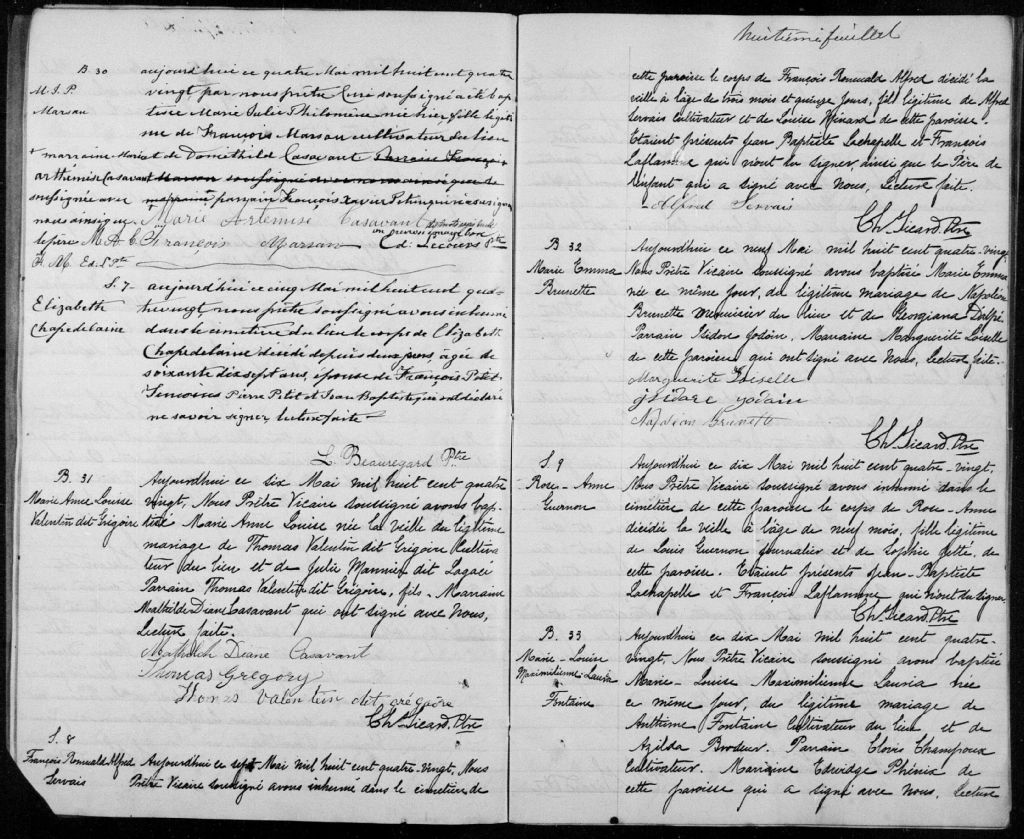 B 30
M. J. P.
Marsan
aujourdhui ce quatre Mai mil huit cent quatre
vingt par nous prêtre Curé soussigné a été bap
tisée Marie Julie Philomène née hier fille légiti
me de François Marsan cultivateur du lieu
+ marraine Marie et de Domethild Casavant Parrain François +
arthemise Casavant Marsan soussigné avec nous ainsi que de
soussignée avec marraine parrain François Xavier Potvin qui n'a su signer
nous ainsi que Marie Artemise Casavant
le père M. A. C. François Marsan Ed. Lecours Ptre
F. M. Ed. L. Ptre
S. 7
Elizabeth
Chapedelaine
aujourdhui ce cinq Mai mil huit cent qua-
trevingt nous prêtre soussigné avons inhumé
dans le cimetière du lieu le corps de Elizabeth
Chapedelaine décédé depuis deux jours, agée de
soixante dix sept ans, épouse de François Petit
Témoins Pierre Petit et Jean Baptiste, qui ont déclaré
ne savoir signer, lecture faite
L. Beauregard Ptre
B. 31
Marie Anne Louise
Valentin dit Grégoire
Aujourdhui ce six Mai mil huit cent quatre
vingt, Nous Prêtre Vicaire soussigné avons bap-
tisé Marie Anne Louise née la veille du légitime
mariage de Thomas Valentin dit Grégoire Cultiva
teur du lieu et de Julie Mannier dit Lagacé
Parrain Thomas Valentin dit Grégoire, fils. Marraine
Mathilde Diane Casavant qui ont signé avec Nous,
Lecture faite.
Mathilde Diane Casavant
Thomas Gregory
Thomas Valentin dit grégoire
Chs Sicard Ptre
S. 8
François Romuald Alfred
Servais
Aujourdhui ce sept Mai mil huit cent quatre-vingt, Nous
Prêtre Vicaire soussigné avons inhumé dans le cimetière de
huitième feuillet
cette paroisse le corps de François Romuald Alfred décédé la
ville à l'âge de trois mois et quinze jours, fils légitime de Alfred
Servais Cultivateur et de Louise Ménard de cette paroisse.
Etaient présents Jean Baptiste Lachapelle et François
Laflamme qui n'ont su signer, ainsi que le Père de
l'enfant qui a signé avec Nous, Lecture faite.
Alfred Servais
Chs Sicard Ptre
B 32
Marie Emma
Brunette
Aujourdhui ce neuf Mai mil huit cent quatre-vingt
Nous Prêtre Vicaire soussigné avons baptisé Marie Emma
née ce même jour, du légitime mariage de Napoléon
Brunette menuisier du lieu et de Georgiana Dalpé
Parrain Isidore Godain, Marraine Marguerite Loiselle
de cette paroisse qui ont signé avec Nous, lecture faite.
Marguerite Loiselle
Isidore Godain
Napoléon Brunette
Chs Sicard Ptre
S. 9
Rose-Anne
Guernon
Aujourdhui ce dix Mai mil huit cent quatre-vingt,
Nous Prêtre Vicaire soussigné avons inhumé dans le
cimetière de cette paroisse le corps de Rose-Anne
décédée la ville à l'âge de neuf mois, fille légitime
de Louis Guernon Journalier et de Sophie Jette de
cette paroisse. Etaient présents Jean-Baptiste
Lachapelle et François Laflamme, qui n'ont su signer
Chs Sicard Ptre
B. 33
Marie-Louise
Maximilienne Lauria
Fontaine
Aujourdhui ce dix Mai mil huit cent quatre-
vingt, Nous Prêtre Vicaire soussigné avons baptisé
Marie-Louise Maximilienne Lauria née
ce même jour, du légitime mariage de
Anthime Fontaine Cultivateur du lieu et de
Azilda Brodeur. Parrain Clovis Champoux
Cultivateur. Marraine Edwidge Phénix de
cette paroisse qui a signé avec Nous, Lecture